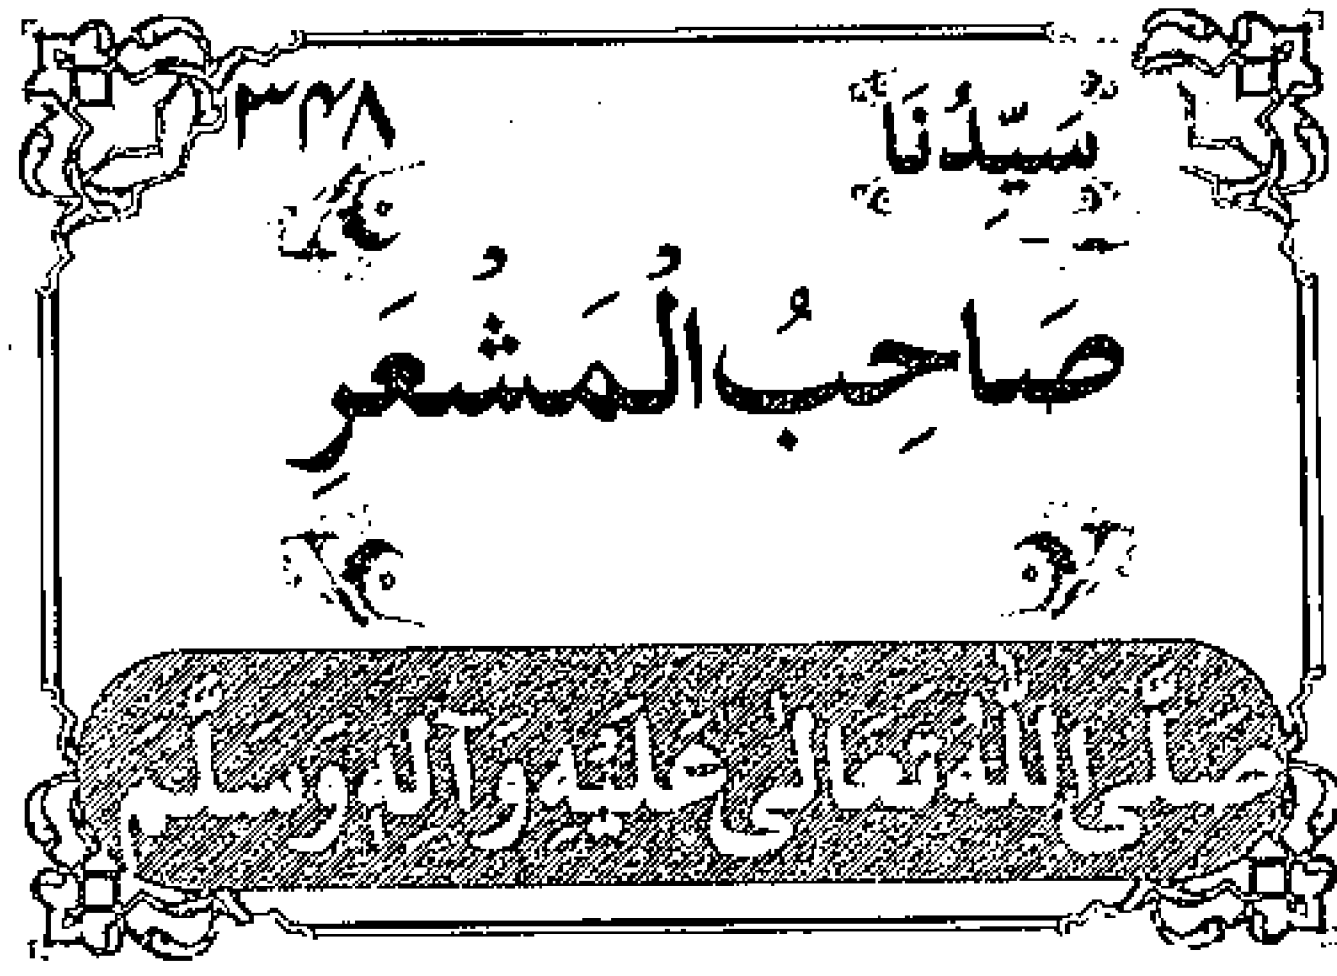 سَيِّدُنَا ٣٣٨
صَاحِبُ الْمَشْعَرِ
صَلَّى اللّٰهُ تَعَالٰى عَلَيْهِ وَآلِهٖ وَسَلَّم